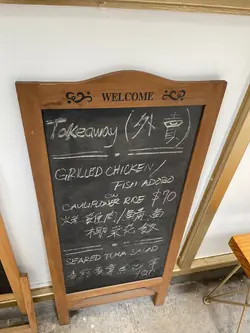 WELCOME
Takeaway (外賣)
GRILLED CHICKEN/
FISH ADOBO
ON
CAULIFLOWER RICE $90
雞肉/
椰菜花飯
SEARED TUNA SALAD